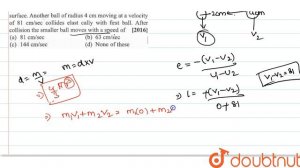 surface. Another ball of radius 4 cm moving at a velocity
of 81 cm/sec collides elast cally with first ball. After
collision the smaller ball moves with a speed of [2016]
(a) 81 cm/sec (b) 63 cm/sec
(c) 144 cm/sec (d) None of these
d = m/v m = d×v
⇒ m₁v₁ + m₂v₂ = m(0) + m₂
2cm 4cm
v₁ v₂
e = -(v₁-v₂)/u₁-v₂
⇒ 1 = -(v₁-v₂)/0+81
v₁-v₂=81